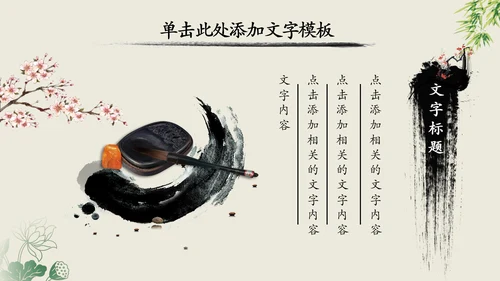 单击此处添加文字模板
文字标题
点击添加相关的文字内容
点击添加相关的文字内容
点击添加相关的文字内容
文字内容